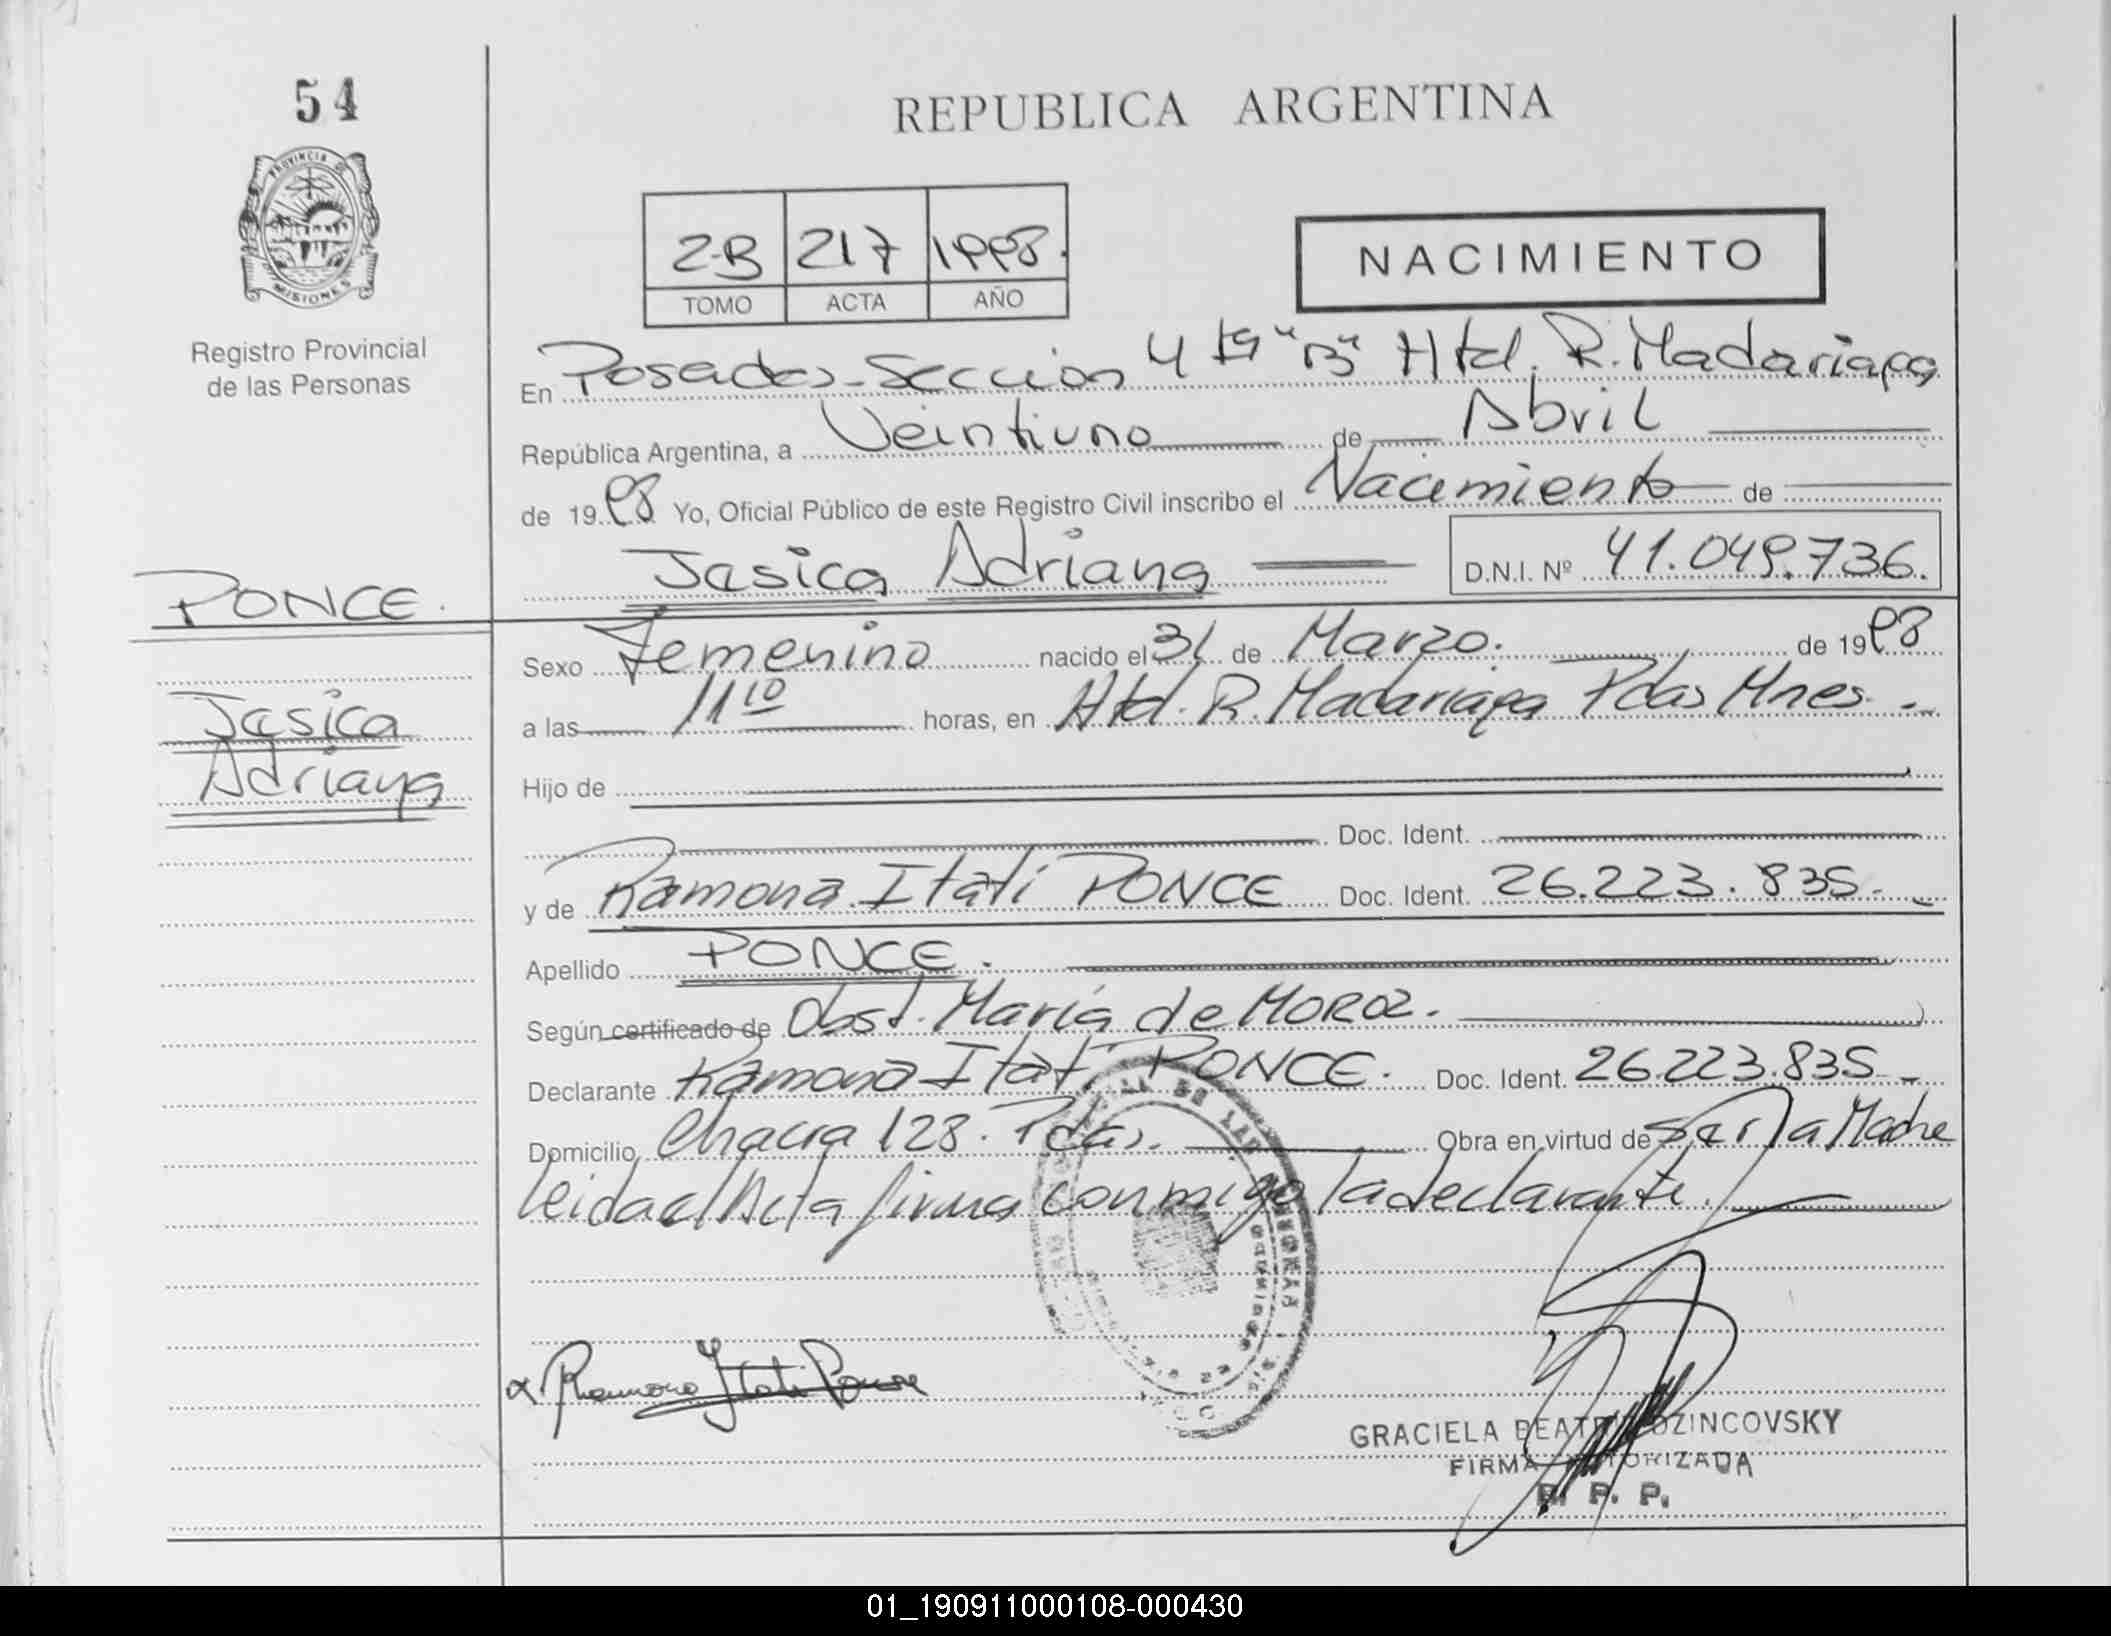 54
REPUBLICA ARGENTINA
PROVINCIA DE
MISIONES
Registro Provincial
de las Personas
2-B 217 1998.
TOMO ACTA AÑO
NACIMIENTO
En Posadas-Seccion 4ta "B" Htal. R. Madariaga
República Argentina, a Veintiuno de Abril
de 1998 Yo, Oficial Público de este Registro Civil inscribo el Nacimiento de
Jasica Adriana D.N.I. Nº 41.049.736.
PONCE.
Jasica
Adriana
Sexo Femenino nacido el 31 de Marzo. de 1998
a las 11 10 horas, en Htal. R. Madariaga Pdas Mnes.-
Hijo de
Doc. Ident.
y de Ramona Itati PONCE Doc. Ident. 26.223.835.-
Apellido PONCE.
Según certificado de Obst. María de MOROZ.
Declarante Ramona Itati PONCE. Doc. Ident. 26.223.835-
Domicilio Chacra 128. Pdas. Obra en virtud de Ser la Madre
leida el Acta firma conmigo la declarante.
Ramona Itati Ponce
GRACIELA BEATRIZ OZINCOVSKY
FIRMA AUTORIZADA
R. P. P.
01_190911000108-000430